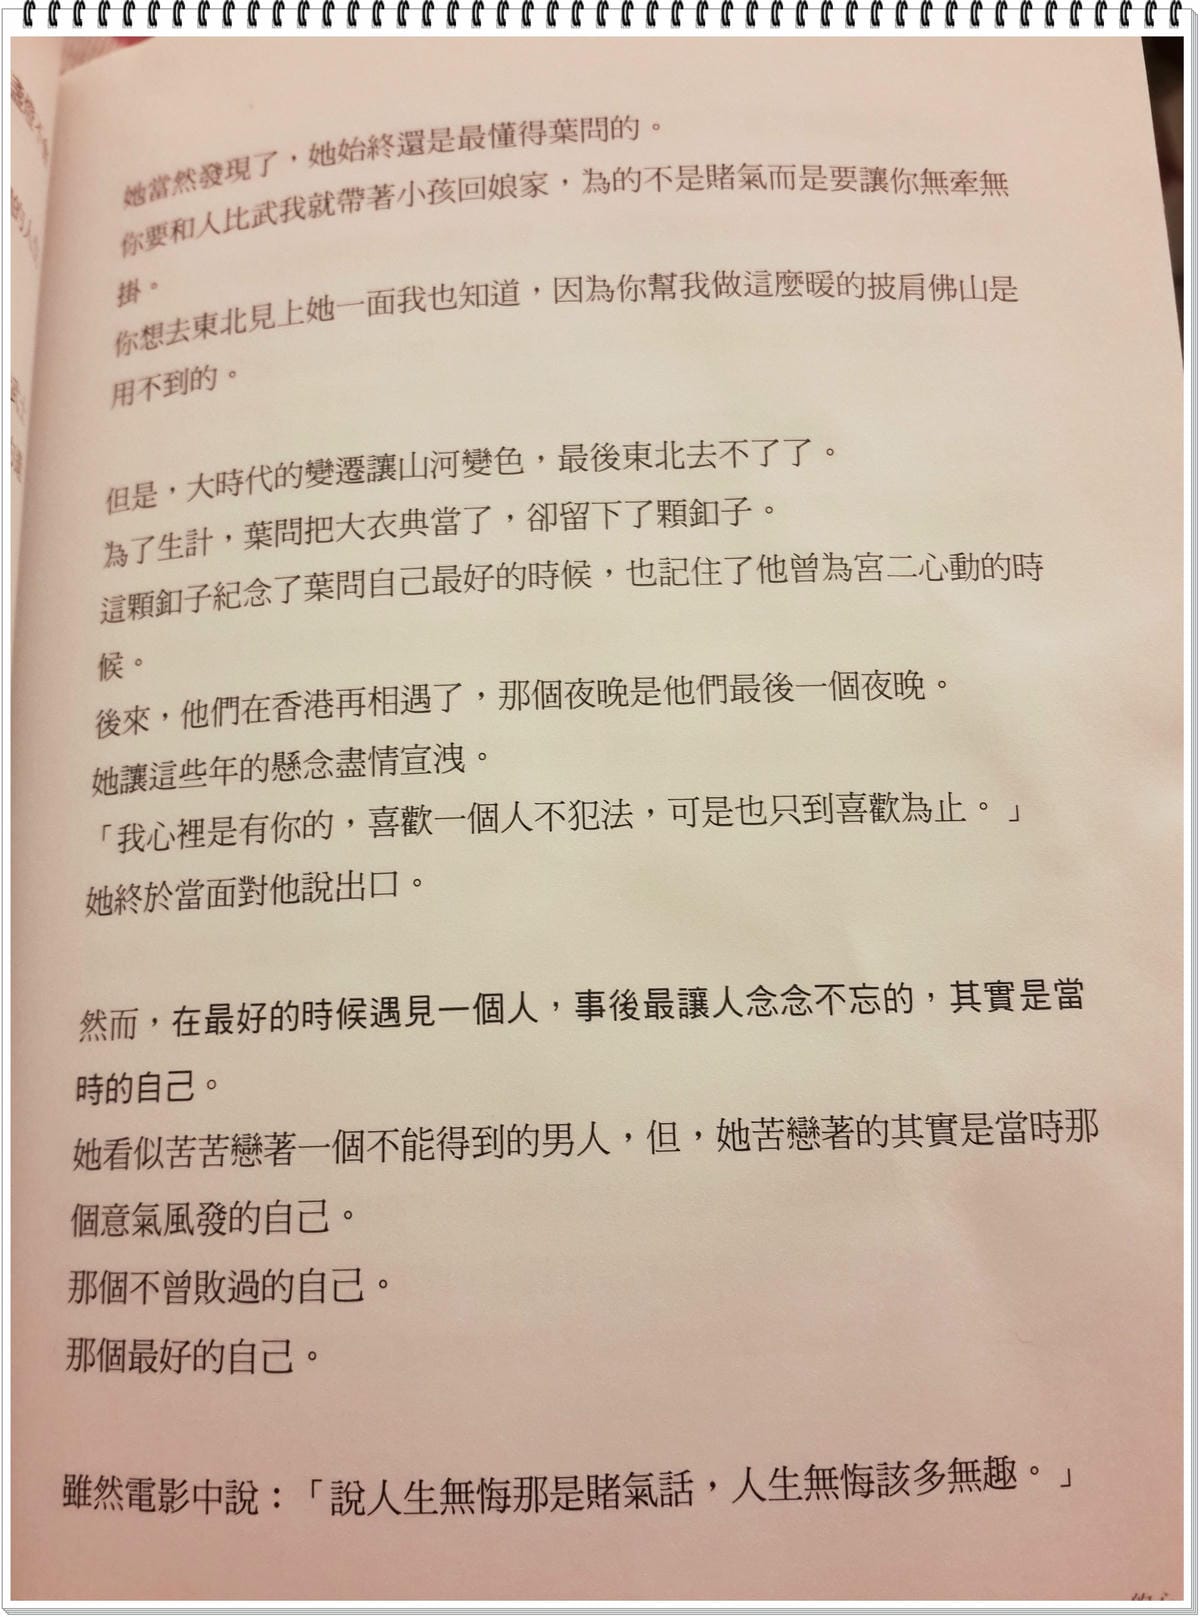 她當然發現了，她始終還是最懂得葉問的。
你要和人比武我就帶著小孩回娘家，為的不是賭氣而是要讓你無牽無
掛。
你想去東北見上她一面我也知道，因為你幫我做這麼暖的披肩佛山是
用不到的。
但是，大時代的變遷讓山河變色，最後東北去不了了。
為了生計，葉問把大衣典當了，卻留下了顆釦子。
這顆釦子紀念了葉問自己最好的時候，也記住了他曾為宮二心動的時
候。
後來，他們在香港再相遇了，那個夜晚是他們最後一個夜晚。
她讓這些年的懸念盡情宣洩。
「我心裡是有你的，喜歡一個人不犯法，可是也只到喜歡為止。」
她終於當面對他說出口。
然而，在最好的時候遇見一個人，事後最讓人念念不忘的，其實是當
時的自己。
她看似苦苦戀著一個不能得到的男人，但，她苦戀著的其實是當時那
個意氣風發的自己。
那個不曾敗過的自己。
那個最好的自己。
雖然電影中說：「說人生無悔那是賭氣話，人生無悔該多無趣。」